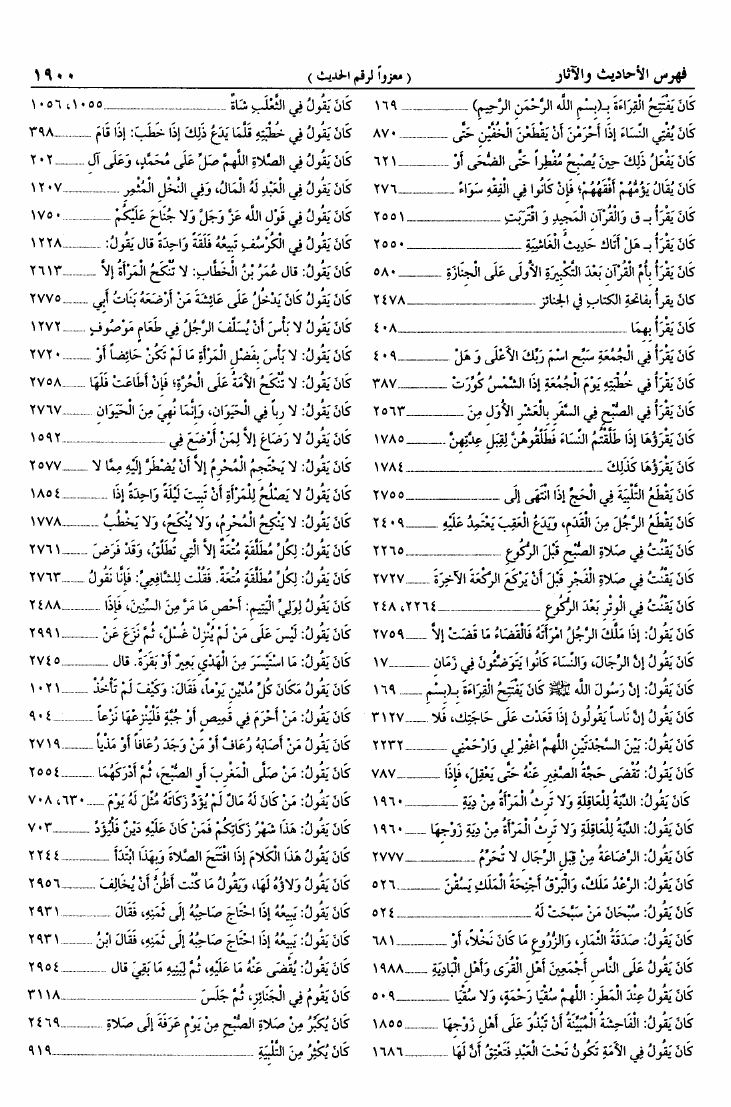 فهرس الأحاديث والآثار
( معزواً لرقم الحديث )
١٩٠٠
كَانَ يَفْتَتِحُ الْقِرَاءَةَ بِـ(بِسْمِ اللَّه الرَّحْمَنِ الرَّحِيمِ) ١٦٩
كَانَ يُفْتِي النِّسَاءَ إِذَا أَحْرَمْنَ أَنْ يَقْطَعْنَ الْخُفَّيْنِ حَتَّى ٨٧٠
كَانَ يَفْعَلُ ذَلِكَ حِينَ يُصْبِحُ مُفْطِراً حَتَّى الضُّحَى أَوْ ٦٢١
كَانَ يُقَالُ يَؤُمُّهُمْ أَفْقَهُهُمْ؛ فإِنْ كَانُوا فِي الْفِقْهِ سَوَاءً ٢٧٦
كَانَ يَقْرَأُ بـ ق وَالْقُرآنِ الْمَجِيدِ وَ اقْتَرَبَتِ ٢٥٥١
كَانَ يَقْرَأُ بـ هَلْ أَتَاكَ حَدِيثُ الْغَاشِيَةِ ٢٥٥٠
كَانَ يَقْرَأُ بِأُمِّ الْقُرْآنِ بَعْدَ التَّكْبِيرَةِ الأُولَى عَلَى الْجِنَازَةِ ٥٨٠
كان يقرأ بفاتحة الكتاب في الجنائز ٢٤٧٨
كَانَ يَقْرَأُ بِهِمَا ٤٠٨
كَانَ يَقْرَأُ فِي الْجُمُعَةِ سَبِّحِ اسْمَ رَبِّكَ الأَعْلَى وَ هَلْ ٤٠٩
كَانَ يَقْرَأُ فِي خُطْبَتِهِ يَوْمَ الْجُمُعَةِ إِذَا الشَّمْسُ كُوِّرَتْ ٣٨٧
كَانَ يَقْرَأُ فِي الصُّبْحِ فِي السَّفَرِ بِالْعَشْرِ الأُوَلِ مِنَ ٢٥٦٣
كَانَ يَقْرَؤُهَا إِذَا طَلَّقْتُمُ النِّسَاءَ فَطَلِّقُوهُنَّ لِقِبَلِ عِدَّتِهِنَّ ١٧٨٥
كَانَ يَقْرَؤُهَا كَذَلِكَ ١٧٨٤
كَانَ يَقْطَعُ التَّلْبِيَةَ فِي الْحَجِّ إِذَا انْتَهَى إِلَى ٢٧٥٥
كَانَ يَقْطَعُ الرِّجْلَ مِنَ الْقَدَمِ، وَيَدَعُ الْعَقِبَ يَعْتَمِدُ عَلَيْهِ ٢٤٠٩
كَانَ يَقْنُتُ فِي صَلاةِ الصُّبْحِ قَبْلَ الرُّكُوعِ ٢٢٦٥
كَانَ يَقْنُتُ فِي صَلاةِ الْفَجْرِ قَبْلَ أَنْ يَرْكَعَ الرَّكْعَةَ الآخِرَةَ ٢٧٢٧
كَانَ يَقْنُتُ فِي الْوِتْرِ بَعْدَ الرُّكُوعِ ٢٢٦٤، ٢٤٨
كَانَ يَقُولُ: إِذَا مَلَّكَ الرَّجُلُ امْرَأَتَهُ فَالْقَضَاءُ مَا قَضَتْ إِلاَّ ٢٧٥٩
كَانَ يَقُولُ إِنَّ الرِّجَالَ، وَالنِّسَاءَ كَانُوا يَتَوَضَّئُونَ فِي زَمَانِ ١٧
كَانَ يَقُولُ: إِنَّ رَسُولَ اللَّه ﷺ كَانَ يَفْتَتِحُ الْقِرَاءَةَ بِـ(بِسْمِ ١٦٩
كَانَ يَقُولُ إِنَّ نَاساً يَقُولُونَ إِذَا قَعَدَتَ عَلَى حَاجَتِكَ، فَلا ٣١٢٧
كَانَ يَقُولُ: بَيْنَ السَّجْدَتَيْنِ اللَّهمَّ اغْفِرْ لِي وَارْحَمْنِي ٢٢٣٢
كَانَ يَقُولُ: تُقْضَى حَجَّةُ الصَّغِيرِ عَنْهُ حَتَّى يَعْقِلَ، فَإِذَا ٧٨٧
كَانَ يَقُولُ: الدِّيَةُ لِلْعَاقِلَةِ وَلا تَرِثُ الْمَرْأَةُ مِنْ دِيَةِ ١٩٦٠
كَانَ يَقُولُ: الدِّيَةُ لِلْعَاقِلَةِ وَلا تَرِثُ الْمَرْأَةُ مِنْ دِيَةِ زَوْجِهَا ١٩٦٠
كَانَ يَقُولُ: الرَّضَاعَةُ مِنْ قِبَلِ الرِّجَالِ لا تُحَرِّمُ ٢٧٧٧
كَانَ يَقُولُ: الرَّعْدُ مَلَكٌ، وَالْبَرْقُ أَجْنِحَةُ الْمَلَكِ يَسُقْنَ ٥٢٦
كَانَ يَقُولُ: سُبْحَانَ مَنْ سَبَّحَتْ لَهُ ٥٢٤
كَانَ يَقُولُ: صَدَقَةُ الثِّمَارِ، وَالزُّرُوعِ مَا كَانَ نَخْلاً، أَوْ ٦٨١
كَانَ يَقُولُ عَلَى النَّاسِ أَجْمَعِينَ أَهْلِ الْقُرَى وَأَهْلِ الْبَادِيَةِ ١٩٨٨
كَانَ يَقُولُ عِنْدَ الْمَطَرِ: اللَّهمَّ سُقْيَا رَحْمَةٍ، وَلا سُقْيَا ٥٠٩
كَانَ يَقُولُ: الْفَاحِشَةُ الْمُبَيِّنَةُ أَنْ تَبْذُوَ عَلَى أَهْلِ زَوْجِهَا ١٨٥٥
كَانَ يَقُولُ فِي الأَمَةِ تَكُونُ تَحْتَ الْعَبْدِ فَتَعْتِقُ أَنَّ لَهَا ١٦٨٦
كَانَ يَقُولُ فِي الثَّعْلَبِ شَاةٌ ١٠٥٥، ١٠٥٦
كَانَ يَقُولُ فِي خُطْبَتِهِ قَلَّمَا يَدَعُ ذَلِكَ إِذَا خَطَبَ: إِذَا قَامَ ٣٩٨
كَانَ يَقُولُ فِي الصَّلاةِ اللَّهمَّ صَلِّ عَلَى مُحَمَّدٍ، وَعَلَى آلِ ٢٠٢
كَانَ يَقُولُ فِي الْعَبْدِ لَهُ الْمَالُ، وَفِي النَّخْلِ الْمُثْمِرِ ١٢٠٧
كَانَ يَقُولُ فِي قَوْلِ اللَّه عَزَّ وَجَلَّ وَلا جُنَاحَ عَلَيْكُمْ ١٧٥٠
كَانَ يَقُولُ فِي الْكُرْسُفِ تَبِيعُهُ فَلَقَةً وَاحِدَةً قال يَقُولُ: ١٢٢٨
كَانَ يَقُولُ: قال عُمَرُ بْنُ الْخَطَّابِ: لا تُنْكَحُ الْمَرْأَةُ إِلاَّ ٢٦١٣
كَانَ يَقُولُ كَانَ يَدْخُلُ عَلَى عَائِشَةَ مَنْ أَرْضَعَهُ بَنَاتُ أَبِي ٢٧٧٥
كَانَ يَقُولُ لا بَأْسَ أَنْ يُسَلِّفَ الرَّجُلُ فِي طَعَامٍ مَوْصُوفٍ ١٢٧٢
كَانَ يَقُولُ: لا بَأْسَ بِفَضْلِ الْمَرْأَةِ مَا لَمْ تَكُنْ حَائِضاً أَوْ ٢٧٢٠
كَانَ يَقُولُ: لا تُنْكَحُ الأَمَةُ عَلَى الْحُرَّةِ؛ فإِنْ أَطَاعَتْ فَلَهَا ٢٧٥٨
كَانَ يَقُولُ: لا رِباً فِي الْحَيَوَانِ، وَإِنَّمَا نُهِيَ مِنَ الْحَيَوَانِ ٢٧٦٧
كَانَ يَقُولُ لا رَضَاعَ إِلاَّ لِمَنْ أَرْضَعَ فِي ١٥٩٢
كَانَ يَقُولُ: لا يَحْتَجِمُ الْمُحْرِمُ إِلاَّ أَنْ يُضْطَرَّ إِلَيْهِ مِمَّا لا ٢٥٧٧
كَانَ يَقُولُ لا يَصْلُحُ لِلْمَرْأَةِ أَنْ تَبِيتَ لَيْلَةً وَاحِدَةً إِذَا ١٨٥٤
كَانَ يَقُولُ: لا يَنْكِحُ الْمُحْرِمُ، وَلا يُنْكَحُ، وَلا يَخْطُبُ ١٧٧٨
كَانَ يَقُولُ: لِكُلِّ مُطَلَّقَةٍ مُتْعَةٌ إِلاَّ الَّتِي تُطَلَّقُ، وَقَدْ فَرَضَ ٢٧٦١
كَانَ يَقُولُ: لِكُلِّ مُطَلَّقَةٍ مُتْعَةٌ. فَقُلْت لِلشَّافِعِيِّ: فَإِنَّا نَقُولُ ٢٧٦٣
كَانَ يَقُولُ لِوَلِيِّ الْيَتِيمِ: أَحْصِ مَا مَرَّ مِنَ السِّنِينَ، فَإِذَا ٢٤٨٨
كَانَ يَقُولُ: لَيْسَ عَلَى مَنْ لَمْ يُنْزِلْ غُسْلٌ، ثُمَّ نَزَعَ عَنْ ٢٩٩١
كَانَ يَقُولُ: مَا اسْتَيْسَرَ مِنَ الْهَدْيِ بَعِيرٌ أَوْ بَقَرَةٌ. قال ٢٧٤٥
كَانَ يَقُولُ مَكَانَ كُلِّ مُدَّيْنِ يَوْماً، فَقَالَ: وَكَيْفَ لَمْ تَأْخُذْ ١٠٢١
كَانَ يَقُولُ: مَنْ أَحْرَمَ فِي قَمِيصٍ أَوْ جُبَّةٍ فَلْيَنْزِعْهَا نَزْعاً ٩٠٤
كَانَ يَقُولُ مَنْ أَصَابَهُ رُعَافٌ أَوْ مَنْ وَجَدَ رُعَافاً أَوْ مَذْياً ٢٧١٩
كَانَ يَقُولُ: مَنْ صَلَّى الْمَغْرِبَ أَوِ الصُّبْحَ، ثُمَّ أَدْرَكَهُمَا ٢٥٥٤
كَانَ يَقُولُ: مَنْ كَانَ لَهُ مَالٌ لَمْ يُؤَدِّ زَكَاتَهُ مُثِّلَ لَهُ يَوْمَ ٦٣٠، ٧٠٨
كَانَ يَقُولُ: هَذَا شَهْرُ زَكَاتِكُمْ فَمَنْ كَانَ عَلَيْهِ دَيْنٌ فَلْيُؤَدِّ ٧٠٣
كَانَ يَقُولُ هَذَا الْكَلامَ إِذَا افْتَتَحَ الصَّلاةَ وَبِهَذَا ابْتَدَأَ ٢٢٤٤
كَانَ يَقُولُ وَلاؤُهُ لَهَا، وَيَقُولُ مَا كُنْت أَظُنُّ أَنْ يُخَالِفَ ٢٩٥٦
كَانَ يَقُولُ: يَبِيعُهُ إِذَا احْتَاجَ صَاحِبُهُ إِلَى ثَمَنِهِ، فَقَالَ ٢٩٣١
كَانَ يَقُولُ: يَبِيعُهُ إِذَا احْتَاجَ صَاحِبُهُ إِلَى ثَمَنِهِ، فَقَالَ ابْنُ ٢٩٣١
كَانَ يَقُولُ: يُقْضَى عَنْهُ مَا عَلَيْهِ، ثُمَّ لِبَنِيهِ مَا بَقِيَ قال ٢٩٥٤
كَانَ يَقُومُ فِي الْجَنَائِزِ، ثُمَّ جَلَسَ ٣١١٨
كَانَ يُكَبِّرُ مِنْ صَلاةِ الصُّبْحِ مِنْ يَوْمِ عَرَفَةَ إِلَى صَلاةِ ٢٤٦٩
كَانَ يُكْثِرُ مِنَ التَّلْبِيَةِ ٩١٩